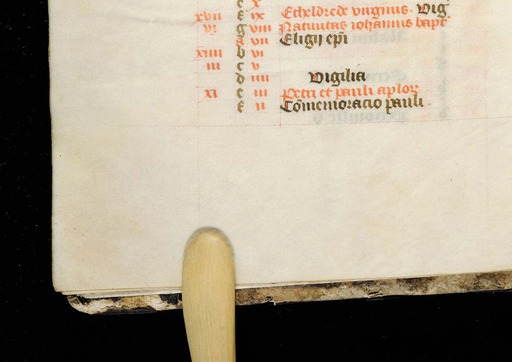 e x
xvii f ix Etheldrede virginis. Vig
vi g viii Natiuitas iohannis bapt
a vii Eligij epi
xiiii b vi
iii c v
d iiii Vigilia
xi e iii Petri et pauli aplor
f ii Comemoracio pauli